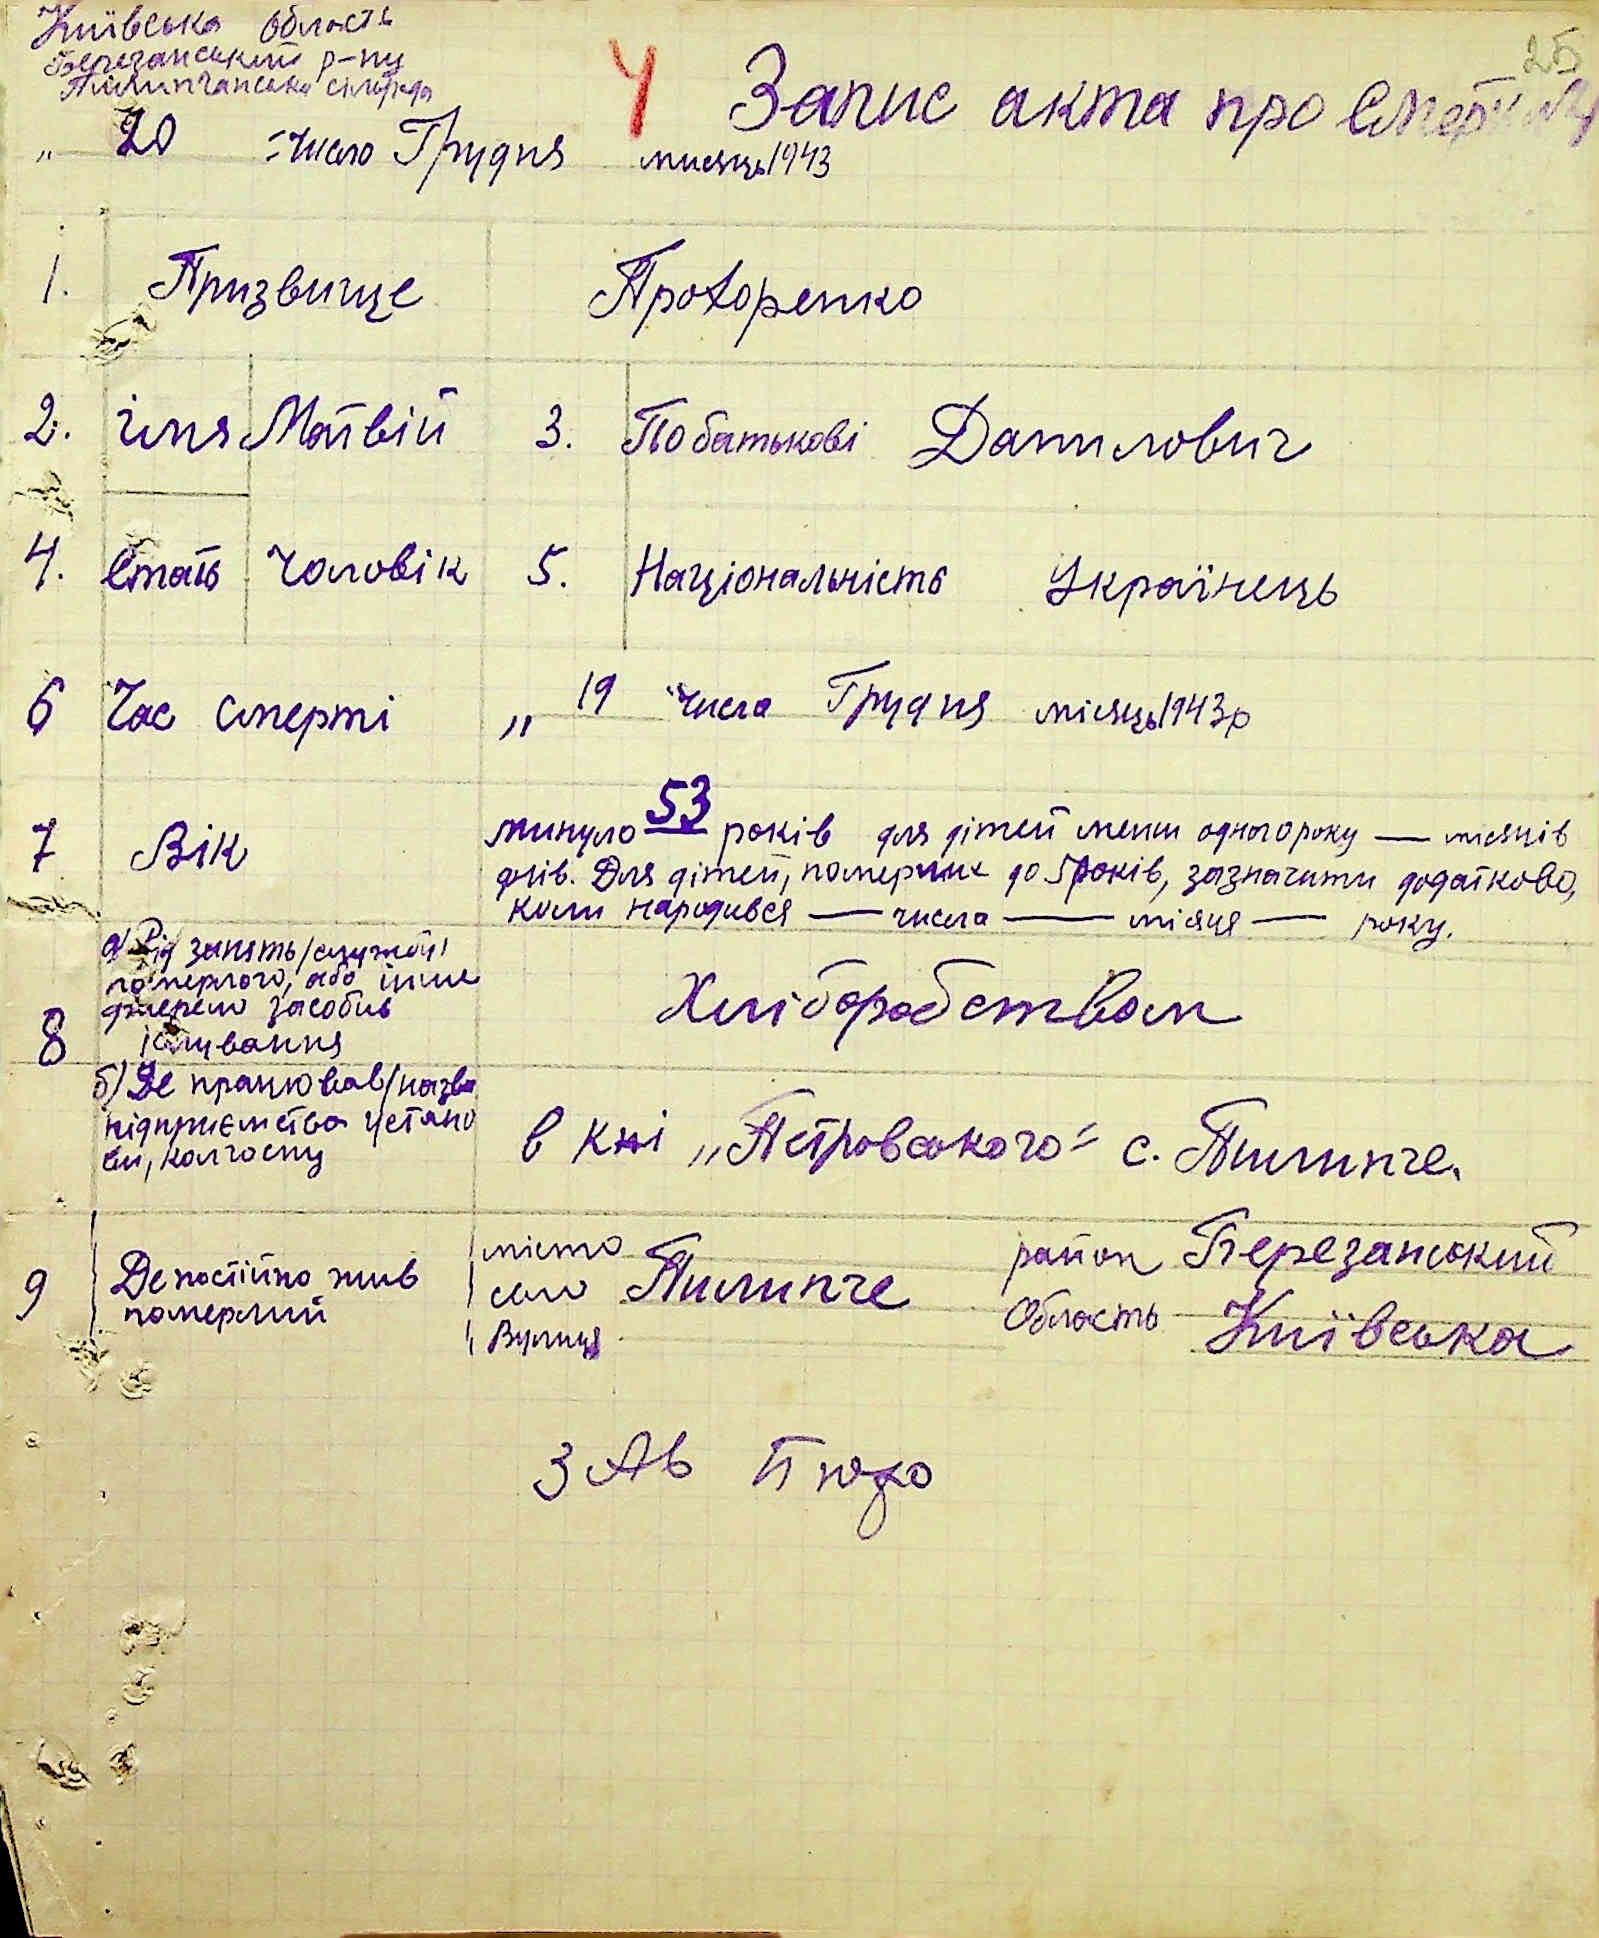 Київська область
Березанський р-ну
Пилипчанська сільрада
25
Ч Запис акта про смерть №4
„ 20 " число Грудня мисяць 1943
1. Призвище Проторенко
2. імя Матвій 3. Побатькові Данилович
4. Стать Чоловік 5. Національність Українець
6 Час смерті „ 19 " числа Грудня місяць 1943р
7 Вік минуло 53 років для дітей менш одного року — місяців
днів. Для дітей, померших до 5 років, зазначити додатково,
коли народився — числа — місяця — року.
8 а) Рід занять /служби/
померлого, або інше
джерело засобів
існування
Хліборобством
б) Де працював /назва
підприємства устано
ви, колгоспу
в кні „Петровського" с. Пилипче.
9 Де постійно жив
померлий
місто
село Пилипче
Вулиця
район Березанський
Область Київська
ЗАв Бюро